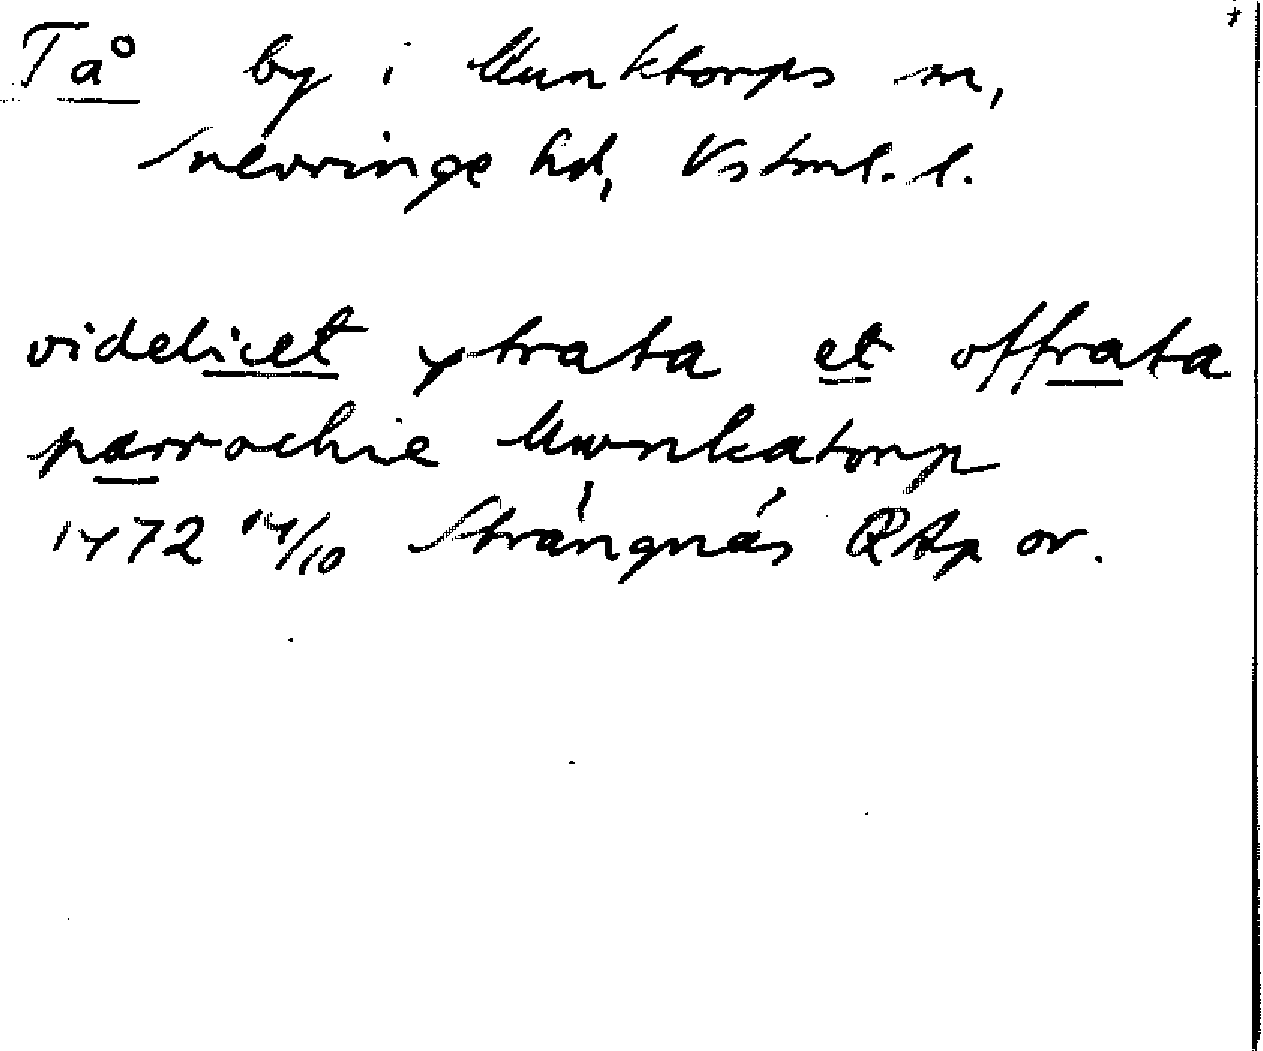 Tå by i Munktorps sn,
Snevringe hd, Vstml. l.
videlicet ytrata et offrata
parrochie Mwnkatorp
1472 14/10 Strängnäs RAp or.